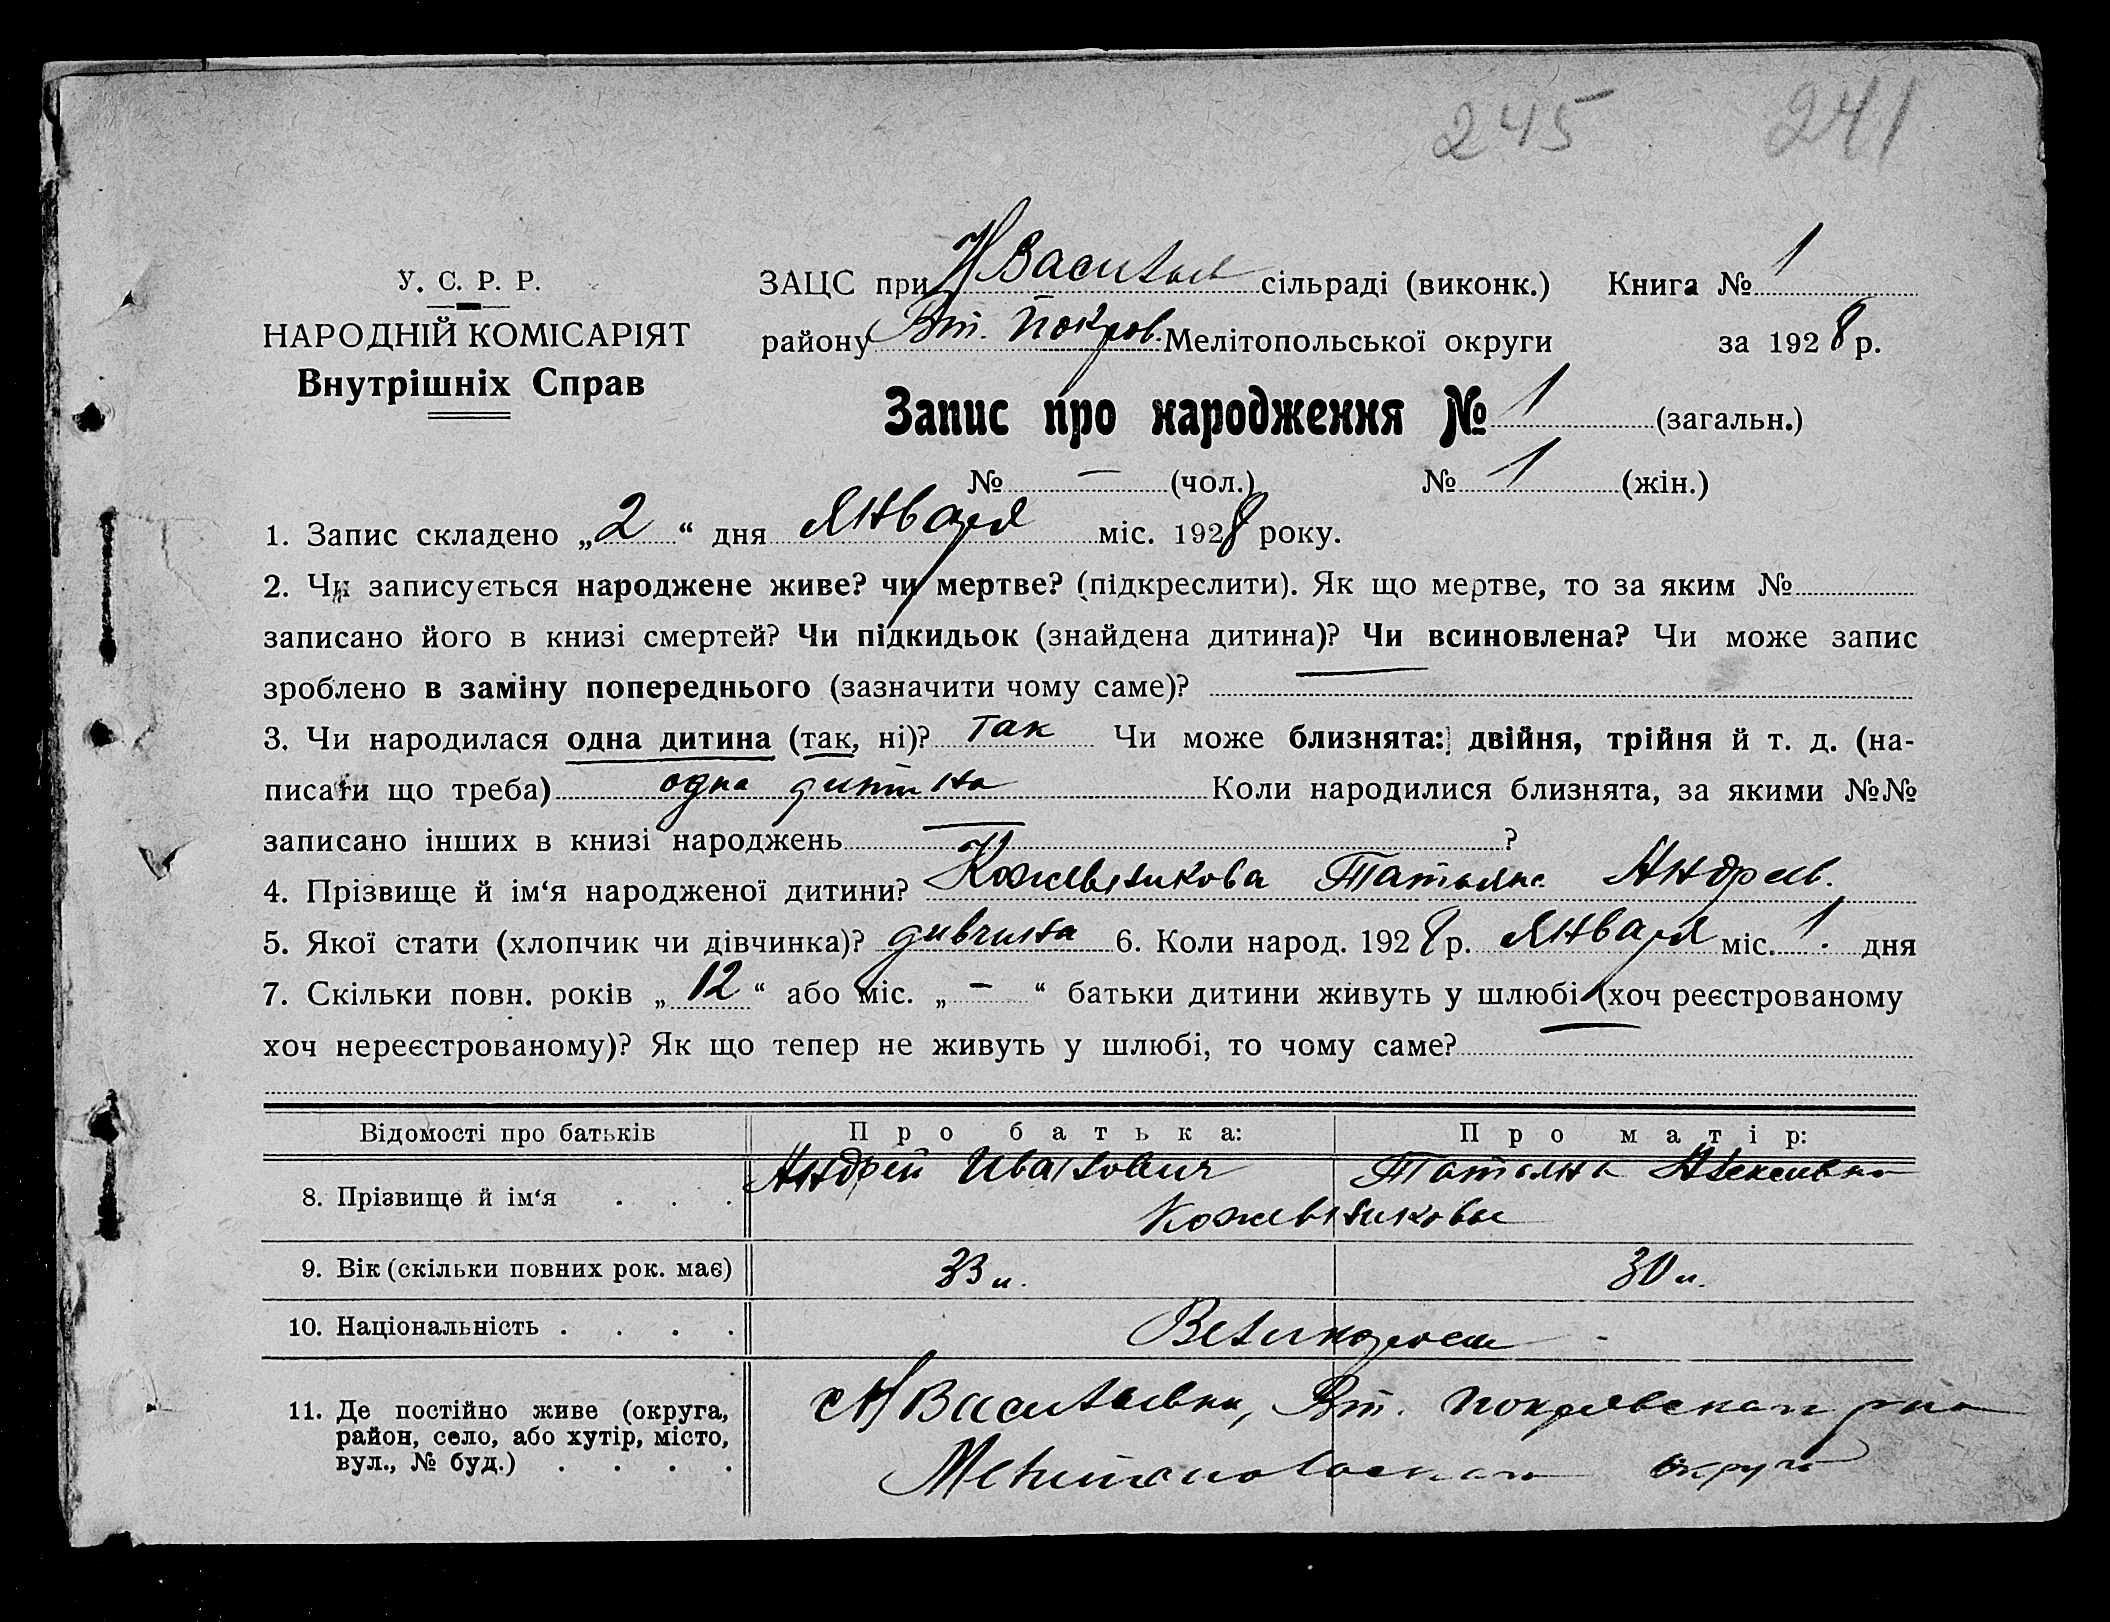 245 241
У. С. Р. Р.
НАРОДНІЙ КОМІСАРІЯТ
Внутрішніх Справ
ЗАЦС при Н Васильев сільраді (виконк.) Книга № 1
району Вт. Покров. Мелітопольської округи за 1928 р.
Запис про народження № 1 (загальн.)
№ — (чол.) № 1 (жін.)
1. Запис складено „2“ дня Января міс. 1928 року.
2. Чи записується народжене живе? чи мертве? (підкреслити). Як що мертве, то за яким №
записано його в книзі смертей? Чи підкидьок (знайдена дитина)? Чи всиновлена? Чи може запис
зроблено в заміну попереднього (зазначити чому саме)? —
3. Чи народилася одна дитина (так, ні)? так Чи може близнята: двійня, трійня й т. д. (на-
писати що треба) одна дитина Коли народилися близнята, за якими №№
записано інших в книзі народжень — ?
4. Прізвище й ім‘я народженої дитини? Кожевникова Татьяна Андреев.
5. Якої стати (хлопчик чи дівчинка)? дивчина 6. Коли народ. 1928 р. Января міс. 1. дня
7. Скільки повн. років „12“ або міс. „—“ батьки дитини живуть у шлюбі (хоч реєстрованому
хоч нереєстрованому)? Як що тепер не живуть у шлюбі, то чому саме? —
Відомості про батьків Про батька: Про матір:
8. Прізвище й ім‘я . . . Андрей Иванович Татьяна Алексеевна
Кожевниковы
9. Вік (скільки повних рок. має) 33 л. 30 л.
10. Національність . . . . Великороссы
11. Де постійно живе (округа,
район, село, або хутір, місто,
вул., № буд.) . . . .
с Н Васильевка, Вт. Покровского р-на
Мелитопольского округа